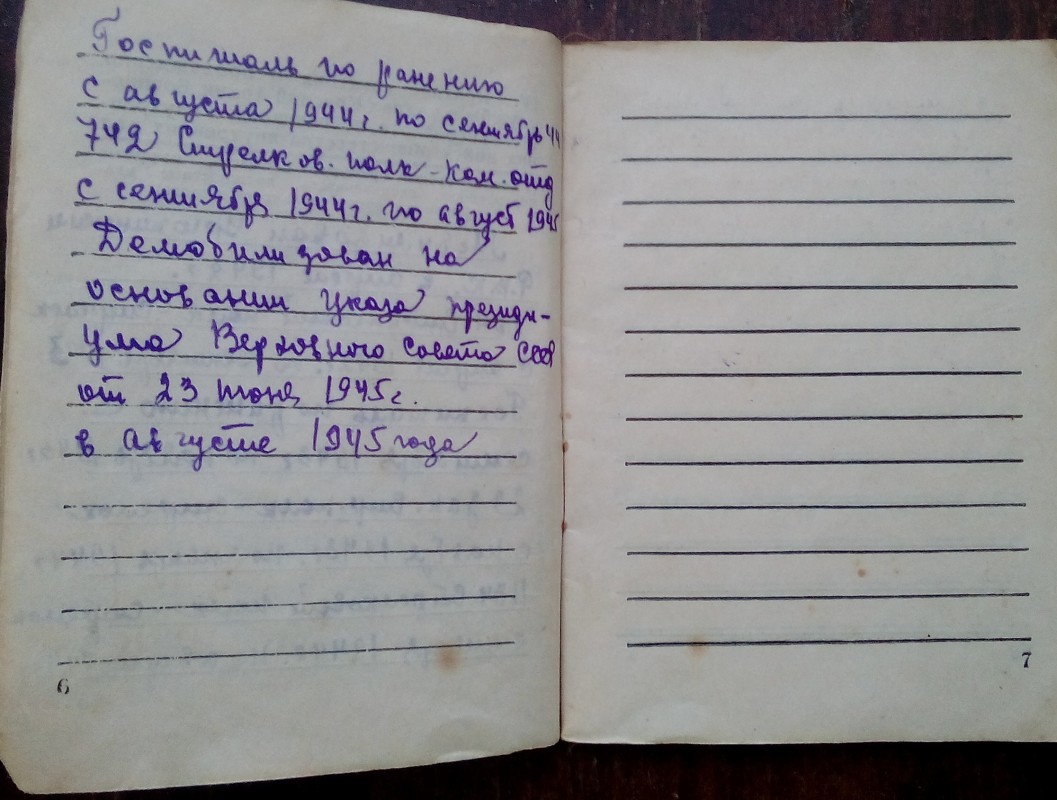 Госпиталь по ранению
с августа 1944г. по сентябрь 44
742 Стрелков. полк - Ком. отд
с сентября 1944г. по август 1945
Демобилизован на
основании указа президи-
ума Верховного совета СССР
от 23 июня 1945г.
в августе 1945 года
6
7